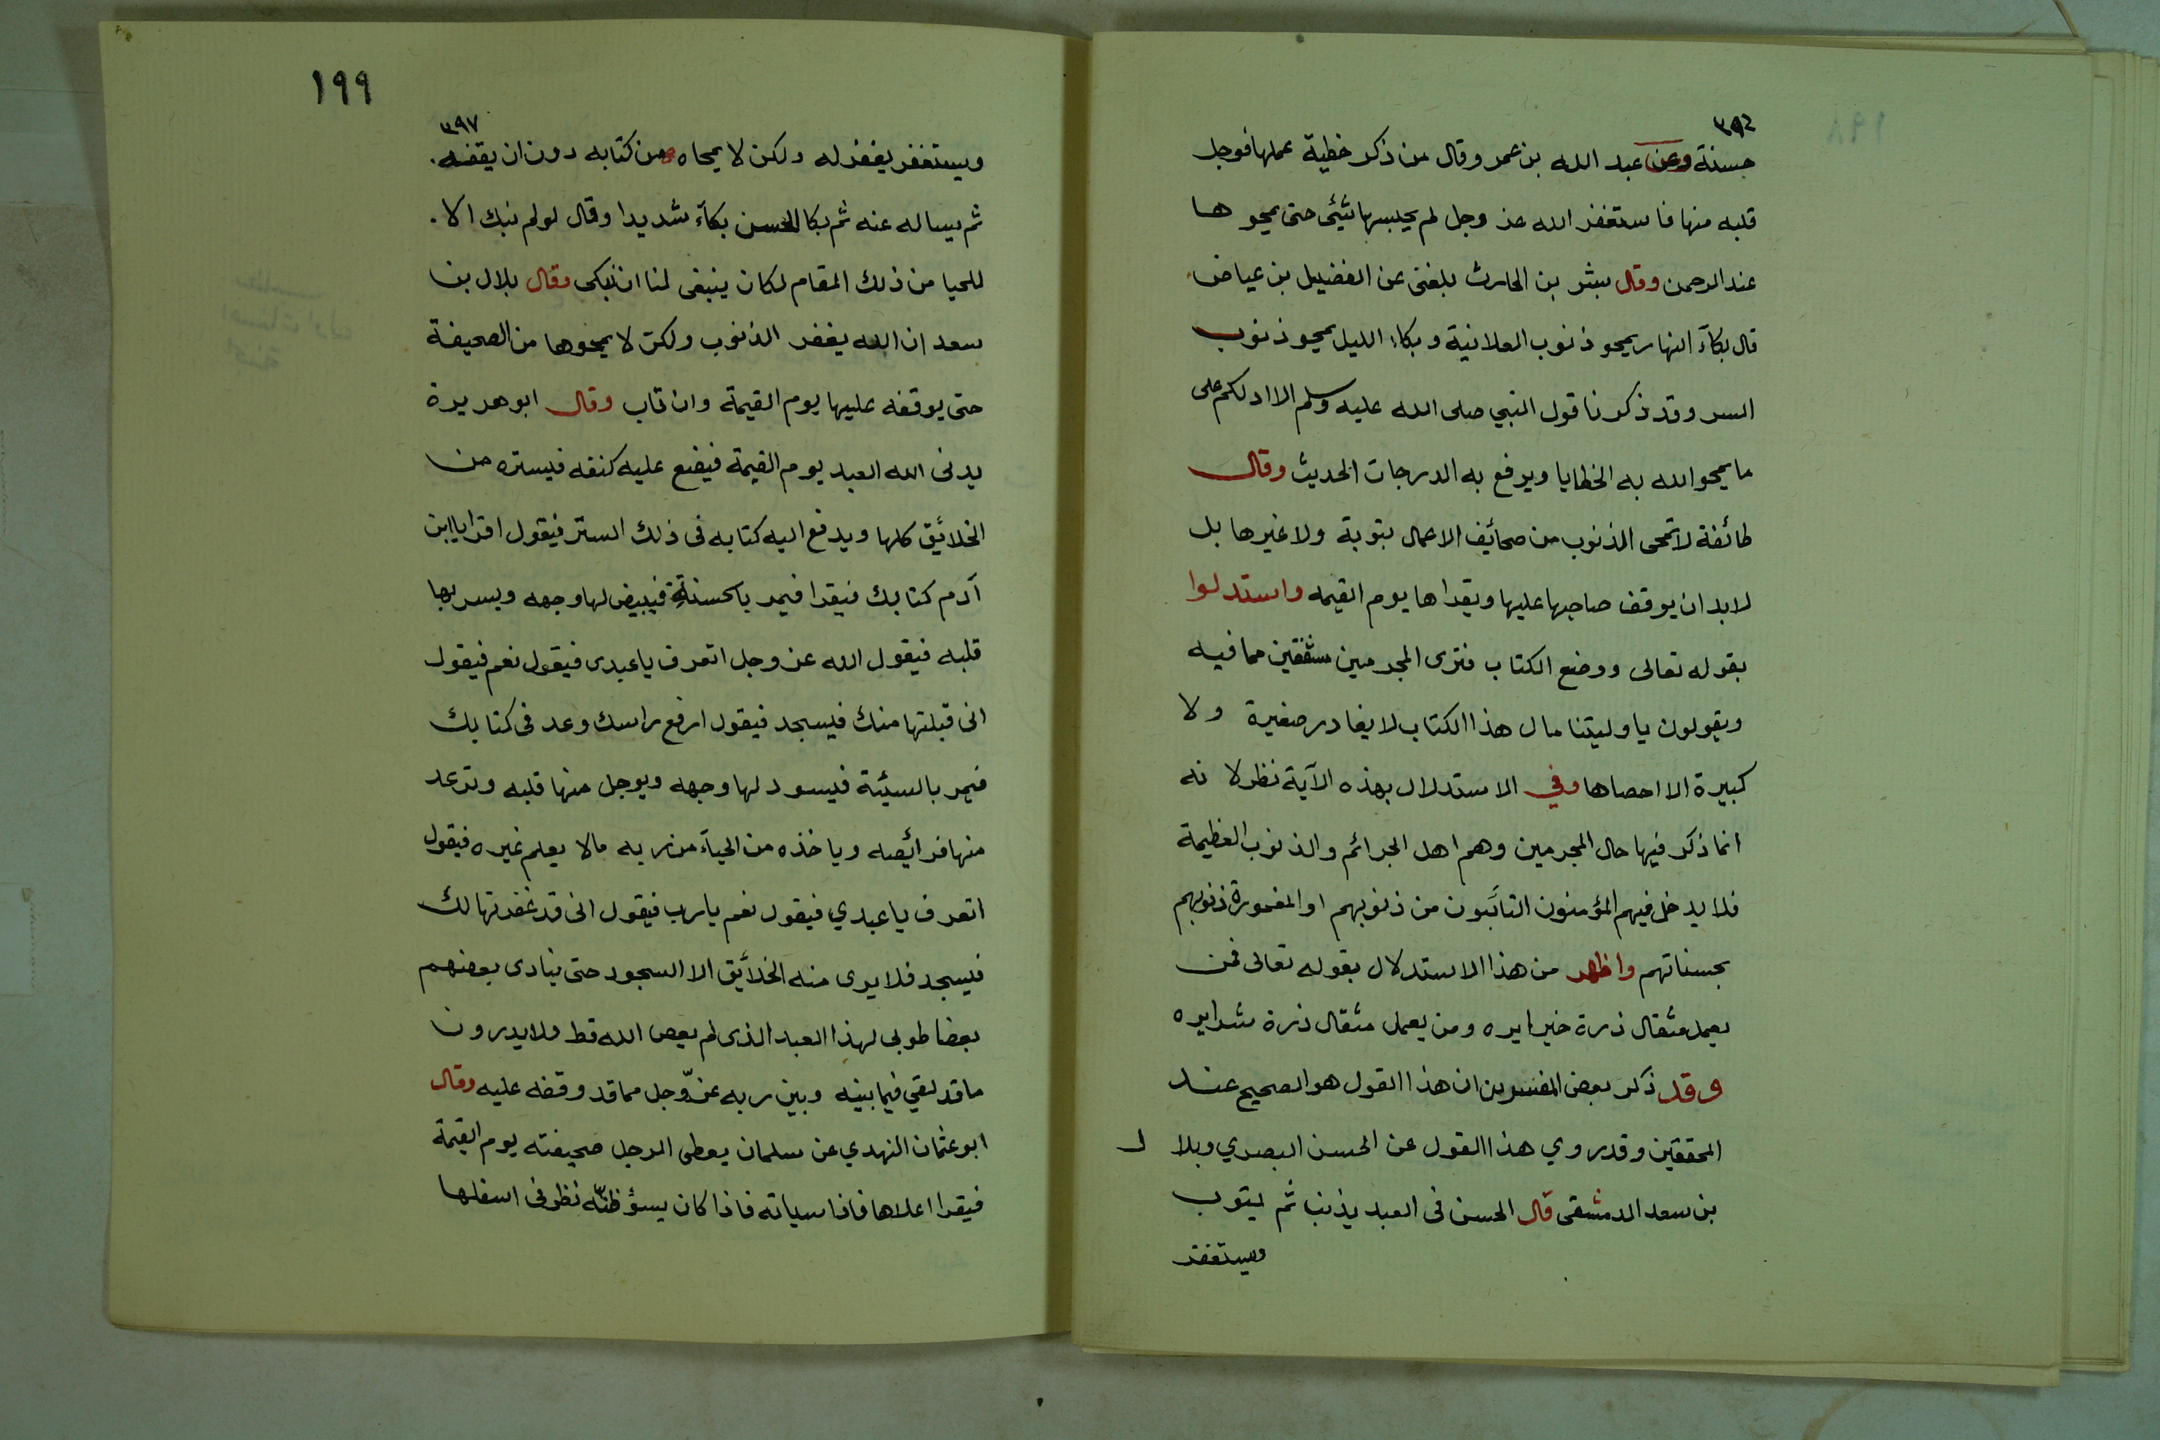 ٣٩٦
حسنة وعن عبد الله بن عمر وقال من ذكر خطية عملها فوجل
قلبه منها فاستغفر الله عز وجل لم يحبسها شئى حتى يمحو ها
عند الرحمن وقال بشر بن الحارث بلغنى عن الفضيل بن عياض
قال بكآء النهار يمحو ذنوب العلانية وبكاء الليل يمحو ذنوب
السر وقد ذكرنا قول النبي صلى الله عليه وسلم الا ادلكم على
ما يمحو الله به الخطايا ويرفع به الدرجات الحديث وقال
طائفة لا تمحى الذنوب من صحائف الاعمال بتوبة ولا غيرها بل
لابد ان يوقف صاحبها عليها ويقراها يوم القيمه واستدلوا
بقوله تعالى ووضع الكتاب فترى المجرمين مشفقين مما فيه
ويقولون يا وليتنا مال هذا الكتاب لا يغادر صغيرة ولا
كبيرة الا احصاها وفي الاستدلال بهذه الآية نظر لا نه
انما ذكر فيها حال المجرمين وهم اهل الجرائم والذنوب العظيمة
فلا يدخل فيهم المؤمنون التائبون من ذنوبهم او المغمورة ذنوبهم
بحسناتهم واظهر من هذا الاستدلال بقوله تعالى فمن
يعمل مثقال ذرة خيرا يره ومن يعمل مثقال ذرة شرا يره
وقد ذكر بعض المفسرين ان هذا القول هو الصحيح عند
المحققين وقد روي هذا القول عن الحسن البصري وبلا ل
بن سعد الدمشقى قال الحسن فى العبد يذنب ثم يتوب
ويستغفر
١٩٩
٣٩٧
ويستغفر يغفر له ولكن لا يمحاه من كتابه دون ان يقفه.
ثم يساله عنه ثم بكا الحسن بكآء شديدا وقال لو لم نبك الا.
للحيا من ذلك المقام لكان ينبغى لنا ان نبكى وقال بلال بن
سعد ان الله يغفر الذنوب ولكن لا يمحوها من الصحيفة
حتى يوقفه عليها يوم القيمة وان تاب وقال ابو هريرة
يدنى الله العبد يوم القيمة فيضع عليه كنفه فيستره من
الخلائق كلها ويدفع اليه كتابه فى ذلك الستر فيقول اقرا يا ابن
آدم كتابك فيقرا فيمر بالحسنة فيبيض لها وجهه ويسر بها
قلبه فيقول الله عز وجل اتعرف يا عبدى فيقول نعم فيقول
انى قبلتها منك فيسجد فيقول ارفع راسك وعد فى كتابك
فيمر بالسيئة فيسود لها وجهه ويوجل منها قلبه وترعد
منها فرائصه وياخذه من الحيآء من ربه مالا يعلم غيره فيقول
اتعرف يا عبدي فيقول نعم يا رب فيقول انى قد غفرتها لك
فيسجد فلا يرى منه الخلائق الا السجود حتى ينادى بعضهم
بعضا طوبى لهذا العبد الذى لم يعص الله قط ولا يدرون
ما قد لقي فيما بينه وبين ربه عزّ وجل مما قد وقفه عليه وقال
ابو عثمان النهدي عن سلمان يعطى الرجل صحيفته يوم القيمة
فيقرا اعلاها فاذا سياته فاذا كان يسؤ ظنّه نظر فى اسفلها